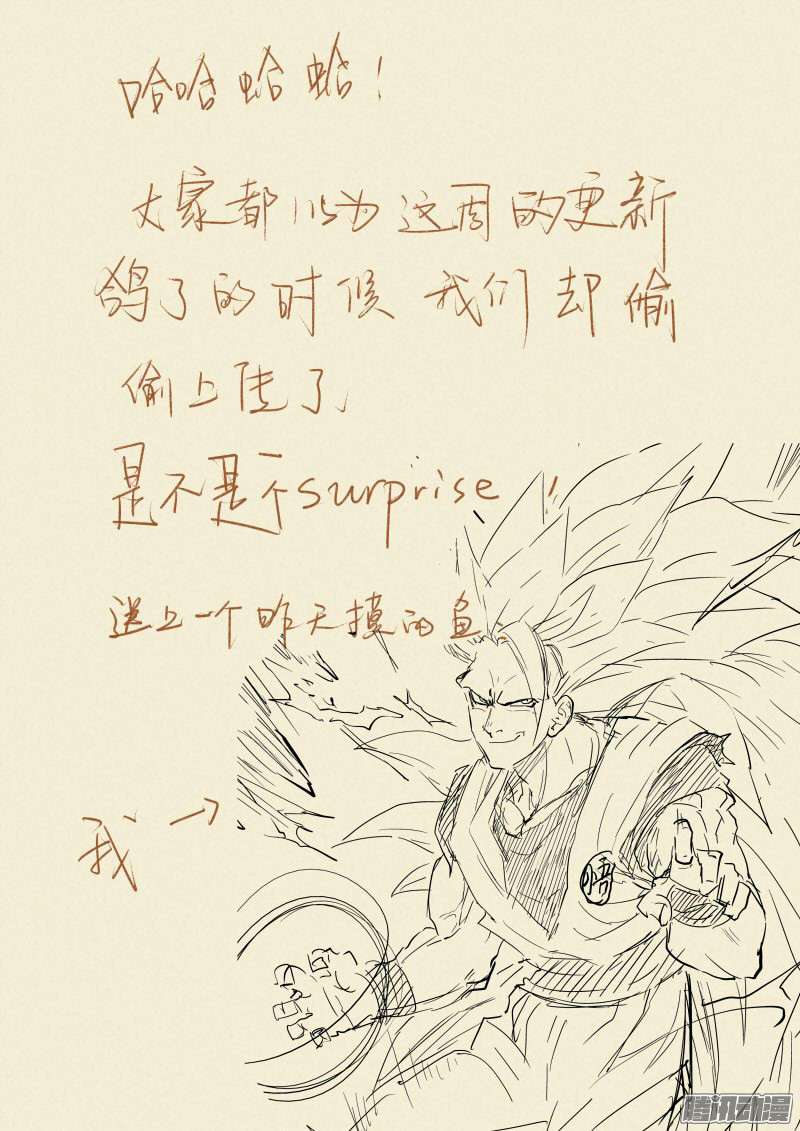 哈哈蛤蛤！
大家都以为这周的更新
鸽了的时候 我们却偷
偷上传了
是不是个surprise！
送上一个昨天摸的鱼
我→
悟
腾讯动漫